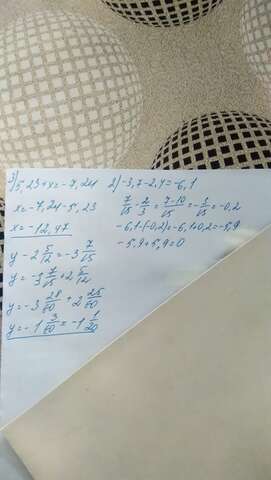 3) 5,23+x=-7,24
x=-7,24-5,23
x=-12,47
y-2 5/12=-3 7/15
y=-3 7/15+2 5/12
y=-3 28/60+2 25/60
y=-1 3/60=-1 1/20
2) -3,7-2,4=-6,1
7/15-2/3=7-10/15=-3/15=-0,2
-6,1-(-0,2)=-6,1+0,2=-5,9
-5,9+5,9=0